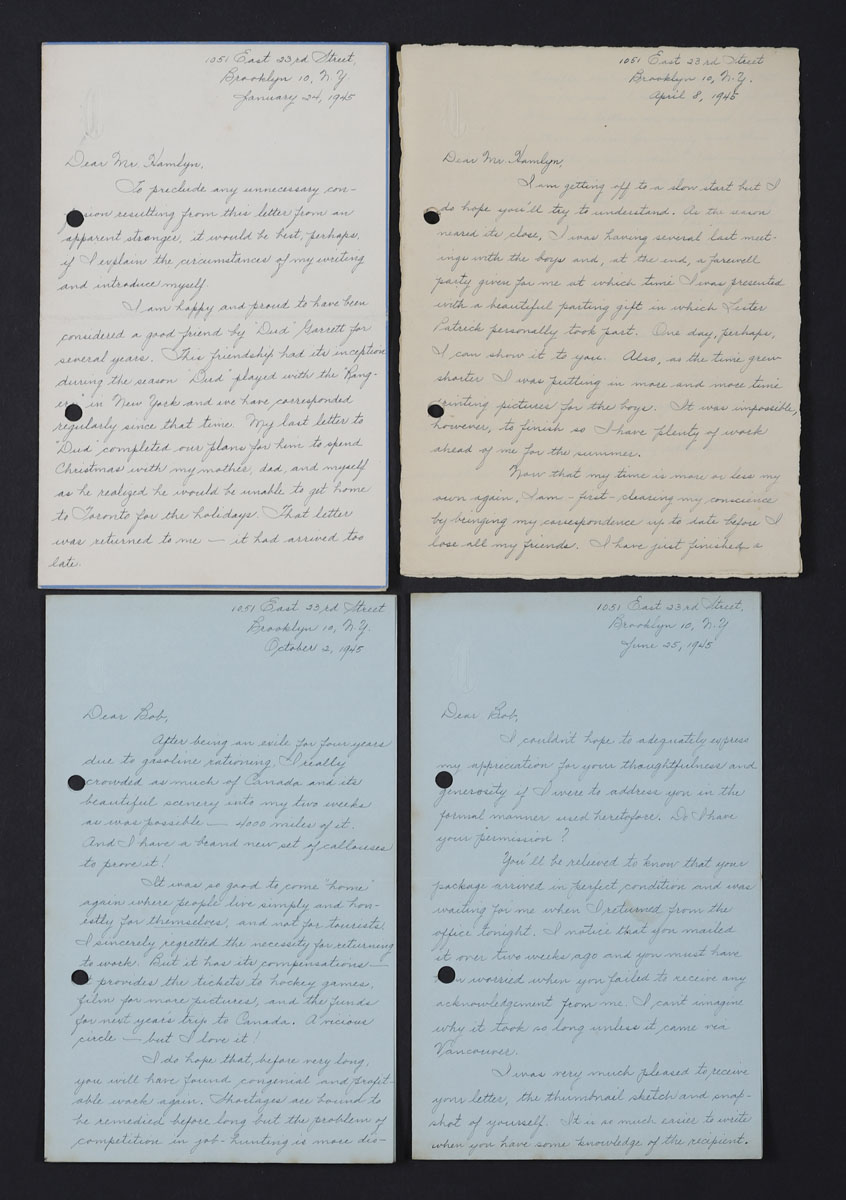 1051 East 23rd Street,
Brooklyn 10, N.Y
January 24, 1945
Dear Mr. Hamlyn,
To preclude any unnecessary con-
sion resulting from this letter from an
apparent stranger, it would be best, perhaps,
if I explain the circumstances of my writing
and introduce myself.
I am happy and proud to have been
considered a good friend by "Dud" Garrett for
several years. This friendship had its inception
during the season "Dud" played with the "Rang-
ers" in New York and we have corresponded
regularly since that time. My last letter to
"Dud" completed our plans for him to spend
Christmas with my mother, dad, and myself
as he realized he would be unable to get home
to Toronto for the holidays. That letter
was returned to me — it had arrived too
late.
1051 East 23rd Street
Brooklyn 10, N.Y.
April 8, 1945
Dear Mr. Hamlyn,
I am getting off to a slow start but I
do hope you'll try to understand. As the season
neared its close, I was having several last meet-
ings with the boys and, at the end, a farewell
party given for me at which time I was presented
with a beautiful parting gift in which Lester
Patrick personally took part. One day, perhaps,
I can show it to you. Also, as the time grew
shorter I was putting in more and more time
printing pictures for the boys. It was impossible,
however, to finish so I have plenty of work
ahead of me for the summer.
Now that my time is more or less my
own again, I am - first - clearing my conscience
by bringing my correspondence up to date before I
lose all my friends. I have just finished a
1051 East 23rd Street
Brooklyn 10, N.Y.
October 2, 1945
Dear Bob,
After being an exile for four years
due to gasoline rationing, I really
crowded as much of Canada and its
beautiful scenery into my two weeks
as was possible — 4000 miles of it.
And I have a brand new set of callouses
to prove it!
It was so good to come "home"
again where people live simply and hon-
estly for themselves, and not for tourists.
I sincerely regretted the necessity for returning
to work. But it has its compensations —
it provides the tickets to hockey games,
film for more pictures, and the funds
for next year's trip to Canada. A vicious
circle — but I love it!
I do hope that, before very long,
you will have found congenial and profit-
able work again. Shortages are bound to
be remedied before long but the problem of
competition in job-hunting is more dis-
1051 East 23rd Street,
Brooklyn 10, N.Y
June 25, 1945
Dear Bob,
I couldn't hope to adequately express
my appreciation for your thoughtfulness and
generosity if I were to address you in the
formal manner used heretofore. Do I have
your permission?
You'll be relieved to know that your
package arrived in perfect condition and was
waiting for me when I returned from the
office tonight. I notice that you mailed
it over two weeks ago and you must have
n worried when you failed to receive any
acknowledgement from me. I can't imagine
why it took so long unless it came via
Vancouver.
I was very much pleased to receive
your letter, the thumbnail sketch and snap-
shot of yourself. It is so much easier to write
when you have some knowledge of the recipient.